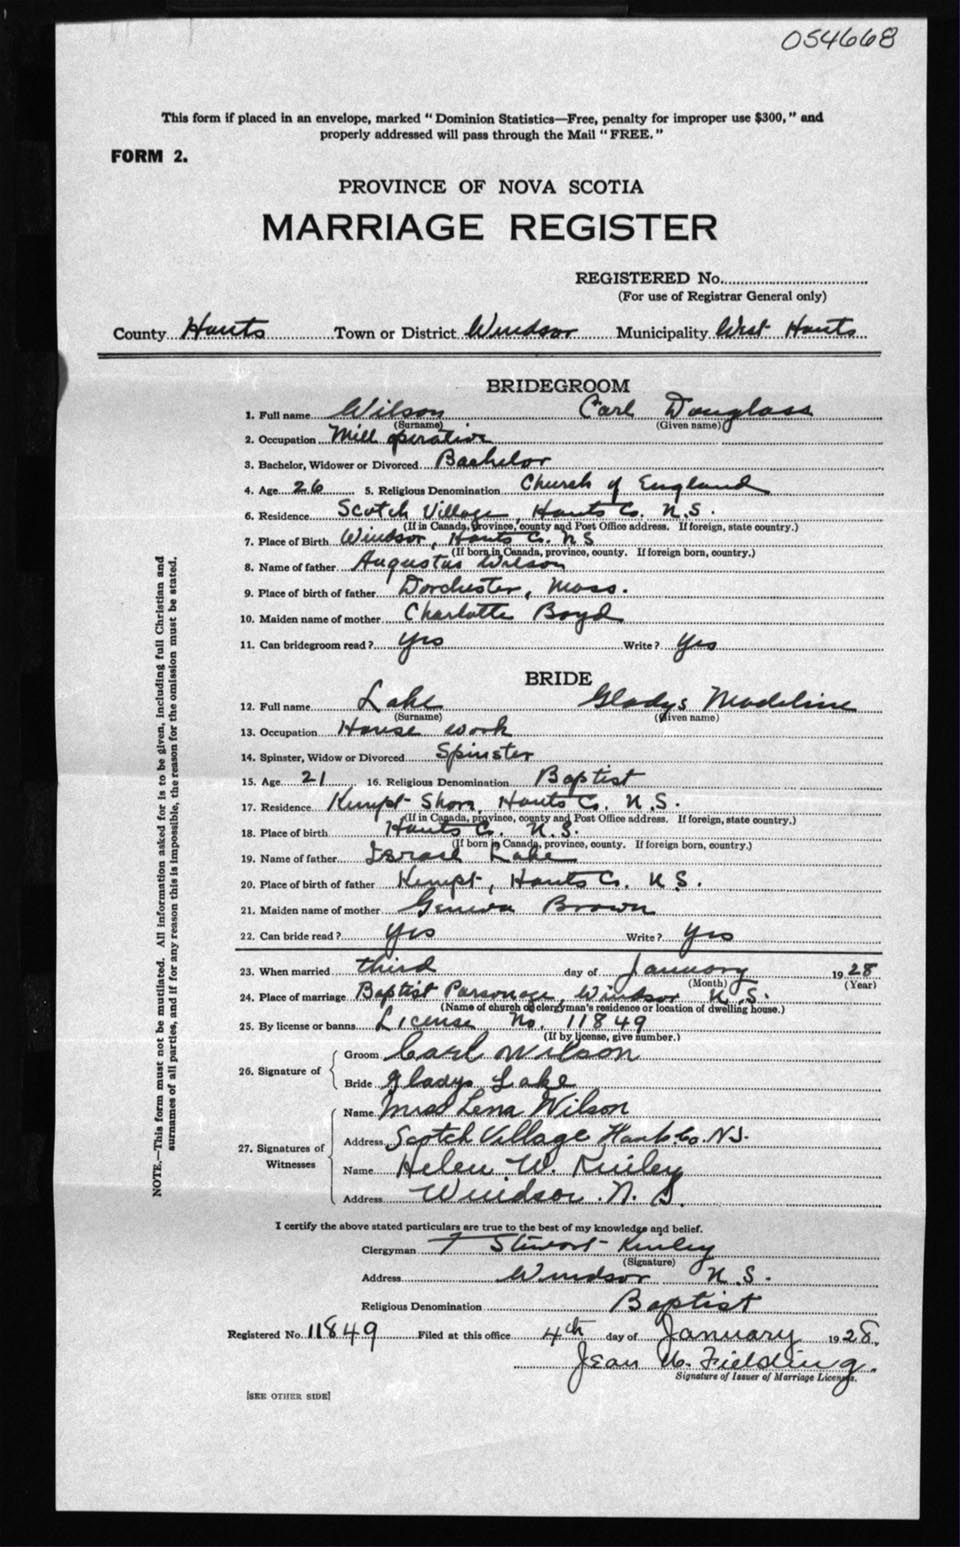 054668
This form if placed in an envelope, marked "Dominion Statistics—Free, penalty for improper use $300," and
properly addressed will pass through the Mail "FREE."
FORM 2.
PROVINCE OF NOVA SCOTIA
MARRIAGE REGISTER
REGISTERED No.
(For use of Registrar General only)
County Hants Town or District Windsor Municipality West Hants
BRIDEGROOM
1. Full name Wilson Carl Douglass
(Surname) (Given name)
2. Occupation Mill operative
3. Bachelor, Widower or Divorced Bachelor
4. Age 26 5. Religious Denomination Church of England
6. Residence Scotch Village, Hants Co. N.S.
(If in Canada, province, county and Post Office address. If foreign, state country.)
7. Place of Birth Windsor, Hants Co. N S
(If born in Canada, province, county. If foreign born, country.)
8. Name of father Augustus Wilson
9. Place of birth of father Dorchester, Mass.
10. Maiden name of mother Charlotte Boyd
11. Can bridegroom read? yes Write? yes
BRIDE
12. Full name Lake Gladys Madeline
(Surname) (Given name)
13. Occupation House work
14. Spinster, Widow or Divorced Spinster
15. Age 21 16. Religious Denomination Baptist
17. Residence Kempt Shore, Hants Co. N.S.
(If in Canada, province, county and Post Office address. If foreign, state country.)
18. Place of birth Hants Co. N.S.
(If born in Canada, province, county. If foreign born, country.)
19. Name of father Israel Lake
20. Place of birth of father Kempt, Hants Co. N.S.
21. Maiden name of mother Geneva Brown
22. Can bride read? yes Write? yes
23. When married third day of January 1928
(Month) (Year)
24. Place of marriage Baptist Parsonage, Windsor N.S.
(Name of church or clergyman's residence or location of dwelling house.)
25. By license or banns License No. 11849
(If by license, give number.)
26. Signature of Groom Carl Wilson
Bride Gladys Lake
27. Signatures of Witnesses Name Miss Lena Wilson
Address Scotch Village Hants Co. N.S.
Name Helen W. Kinley
Address Windsor. N. S.
I certify the above stated particulars are true to the best of my knowledge and belief.
Clergyman Stewart Kinley
(Signature)
Address Windsor N.S.
Religious Denomination Baptist
Registered No. 11849 Filed at this office 4th day of January 1928.
Jean Fielding.
Signature of Issuer of Marriage Licenses.
[SEE OTHER SIDE]
NOTE.—This form must not be mutilated. All information asked for is to be given, including full Christian and
surnames of all parties, and if for any reason this is impossible, the reason for the omission must be stated.